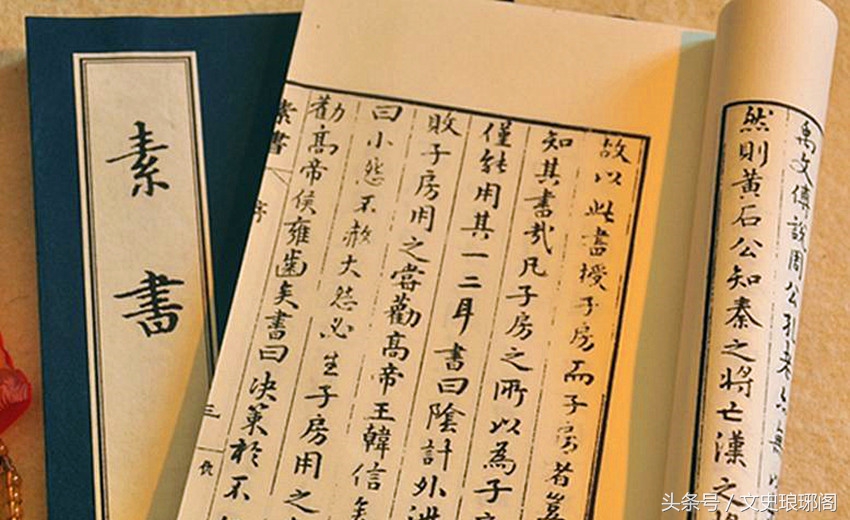 素書
禹文傅說周公孔老亦無以
然則黃石公知秦之將亡漢之
故以此書授子房而子房者豈
知其書哉凡子房之所以為子
僅能用其一二耳書曰陰計外泄
敗子房用之嘗勸高帝王韓信矣
曰小怨不赦大怨必生子房用之
勸高帝侯雍齒矣書曰決策於不
素書 序 三
头条号 / 文史琅琊阁